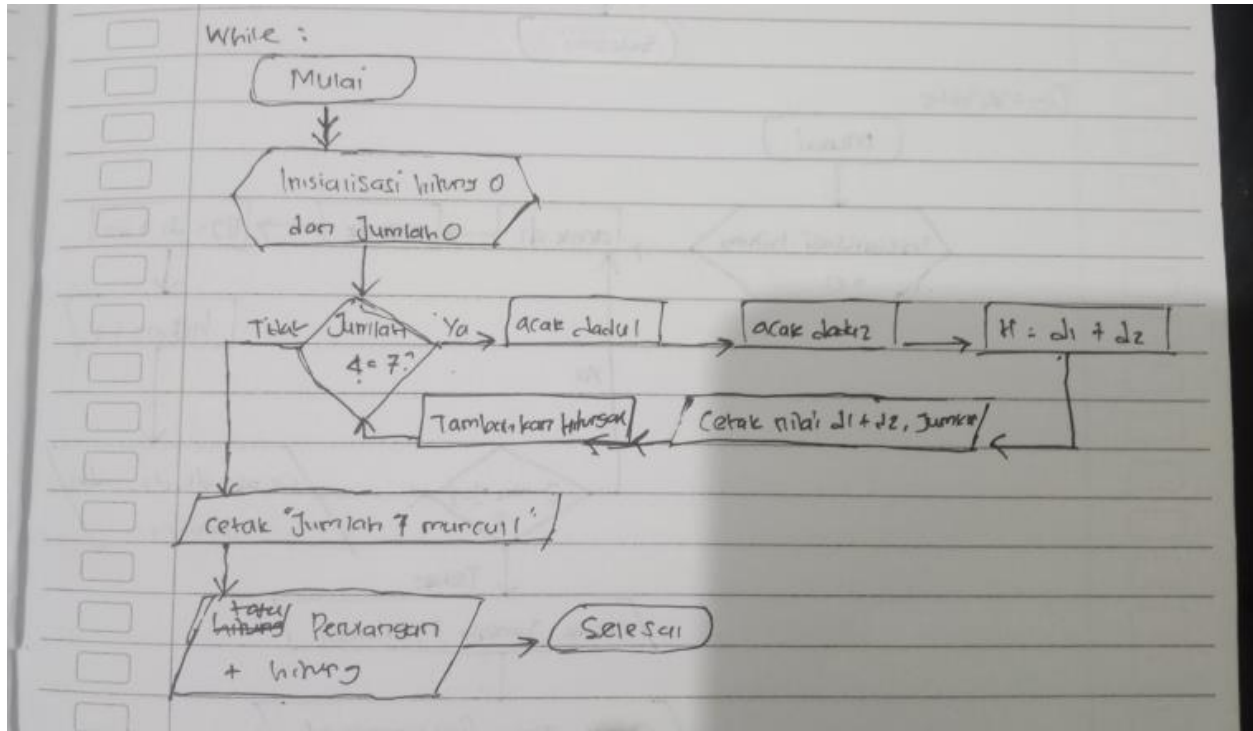 While :
Mulai
Inisialisasi hitung 0
dan Jumlah 0
Tidak
Jumlah
Ya
acak dadu 1
acak dadu 2
H = d1 + d2
7?
Cetak nilai d1 + d2, Jumlah
Tambahkan
cetak "Jumlah 7 muncul!"
total
hitung Perulangan
+ hitung
Selesai